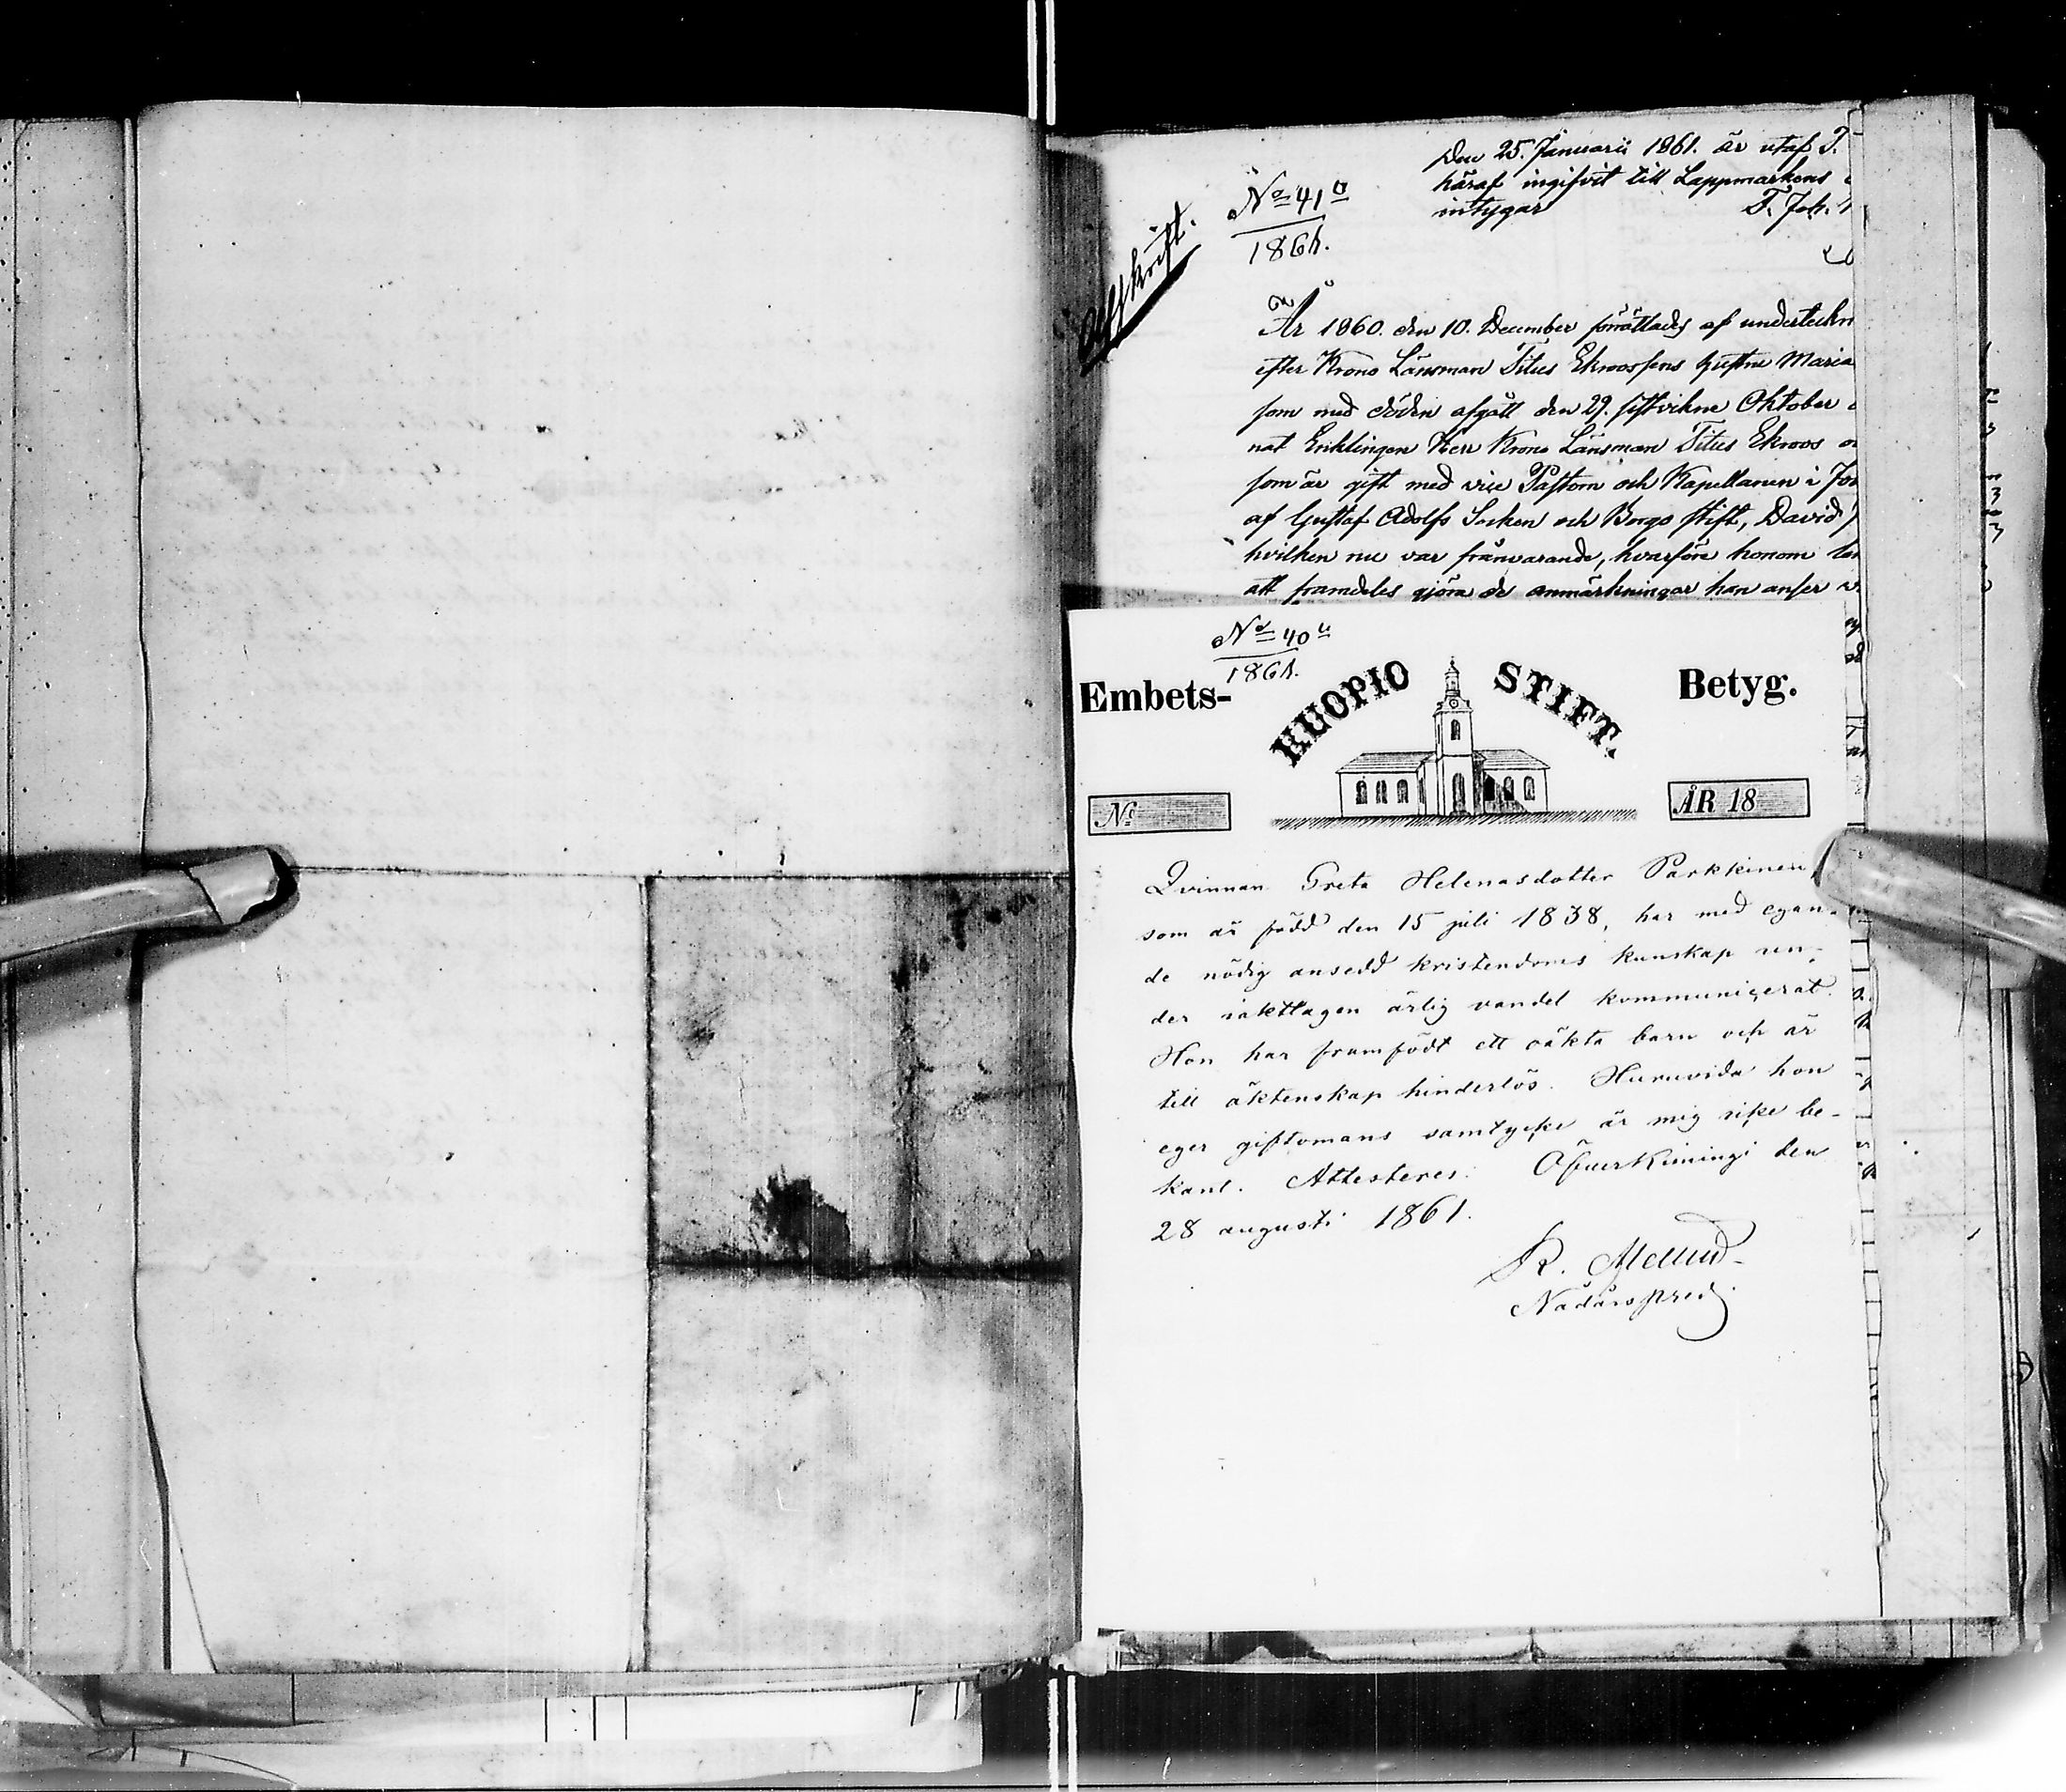 Afskrift.
No 41
1861.
Den 25. Januarii 1861. är utaf T.
häraf ingifvit till Lappmarkens
intygar T. Joh.
År 1860. den 10. December förrättades af underteckn
efter Krono Länsman Titus Ekroos hustru Maria
som med döden afgått den 29. sistvikne Oktober
nat Enklingen Herr Krono Länsman Titus Ekroos
som är gift med vice Pastorn och Kapellanen i
af Gustaf Adolfs Socken och Borgo stift, David
hvilken nu var frånvarande, hvarföre honom
att framdeles gjöra de anmärkningar han anser
No 40
1861.
Embets- KUOPIO STIFT. Betyg.
No ÅR 18
Qvinnan Greta Helenasdotter Parkkinen,
som är född den 15 juli 1838, har med egan-
de nödig ansedd kristendoms kunskap un-
der iakttagen ärlig vandel kommunicerat.
Hon har framfödt ett oäkta barn och är
till äktenskap hinderlös. Huruvida hon
eger giftomans samtycke är mig icke be-
kant. Attesteras. Öfverkiimingi den
28 augusti 1861.
R. Mellud
Nådårspred.